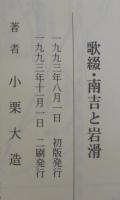 歌綴・南吉と岩滑
一九九三年八月一日　初版発行
一九九三年十一月一日　二刷発行
著者　小栗大造